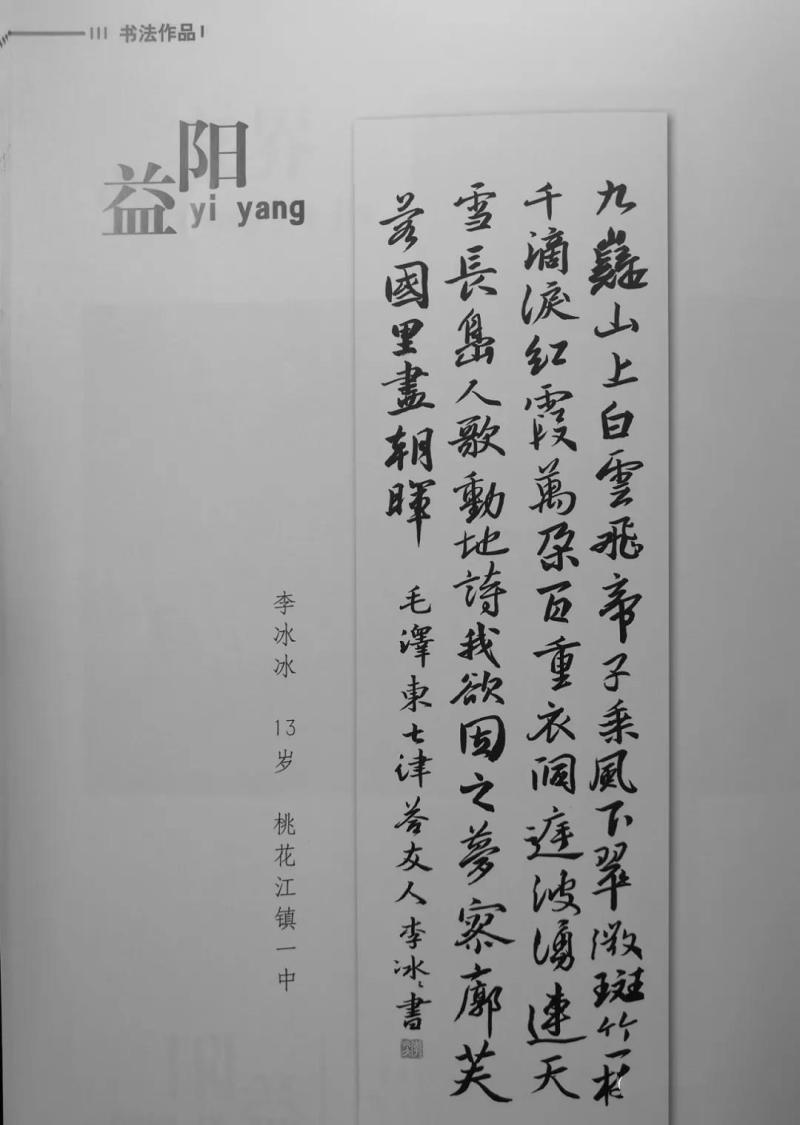 书法作品
益阳
yi yang
九嶷山上白雲飛帝子乘風下翠微斑竹一枝
千滴淚紅霞萬朵百重衣洞庭波湧連天
雪長島人歌動地詩我欲因之夢寥廓芙
蓉國里盡朝暉
毛澤東七律答友人李冰〻書
李冰冰 13岁 桃花江镇一中